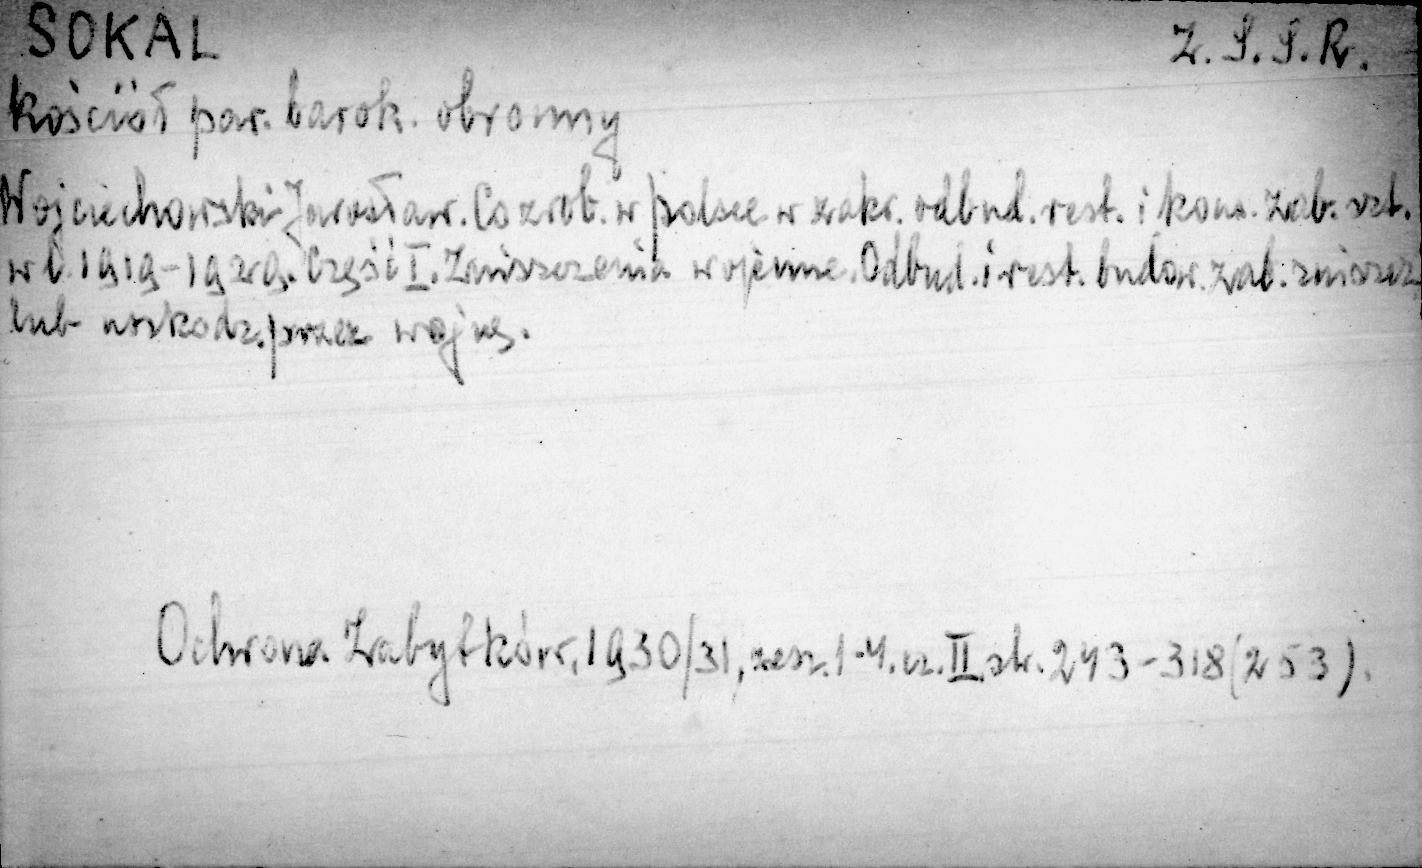 SOKAL
Z.S.S.R.
Kościół par. barok. obronny
Wojciechowski Jarosław. Co zrob. w Polsce w zakr. odbud. rest. i kons. zab. szt.
w l. 1919-1929. Część I. Zniszczenia wojenne. Odbud. i rest. budow. zab. zniszcz.
lub uszkodz. przez wojnę.
Ochrona Zabytków, 1930/31, zesz. 1-4. cz. II. str. 243-318 (253).